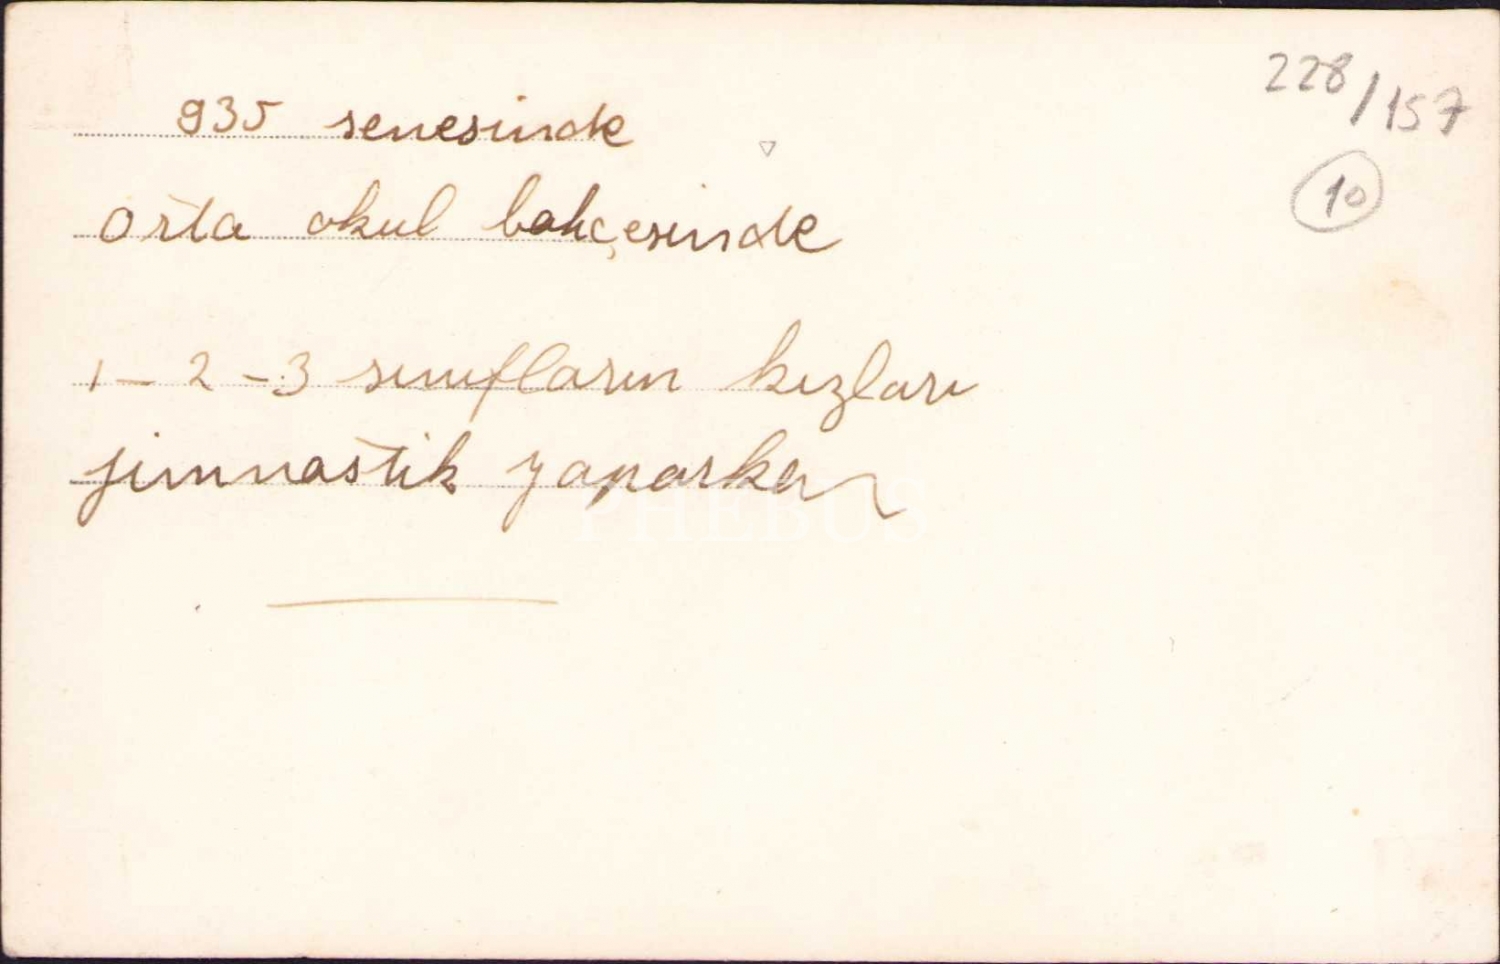 935 senesinde
orta okul bahçesinde
1-2-3 sınıfların kızları
jimnastik yaparken
228/157
10
PHEBUS